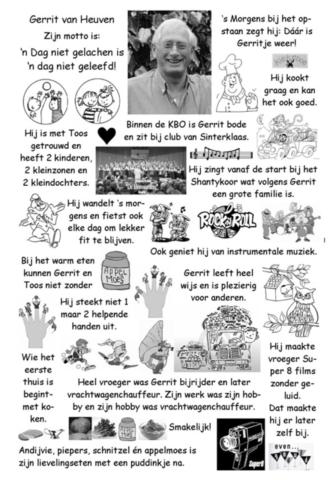 Gerrit van Heuven
Zijn motto is:
'n Dag niet gelachen is
'n dag niet geleefd!
's Morgens bij het op-
staan zegt hij: Dáár is
Gerritje weer!
Hij kookt
graag en kan
het ook goed.
Binnen de KBO is Gerrit bode
en zit bij club van Sinterklaas.
Hij is met Toos
getrouwd en
heeft 2 kinderen,
2 kleinzonen en
2 kleindochters.
Hij zingt vanaf de start bij het
Shantykoor wat volgens Gerrit
een grote familie is.
Hij wandelt 's mor-
gens en fietst ook
elke dag om lekker
fit te blijven.
ROCK'N ROLL
Ook geniet hij van instrumentale muziek.
Bij het warm eten
kunnen Gerrit en
Toos niet zonder
APPEL
MOES
Gerrit leeft heel
wijs en is plezierig
voor anderen.
Hij steekt niet 1
maar 2 helpende
handen uit.
Hij maakte
vroeger Su-
per 8 films
zonder ge-
luid.
Dat maakte
hij er later
zelf bij.
Wie het
eerste
thuis is
begint-
met ko-
ken.
Heel vroeger was Gerrit bijrijder en later
vrachtwagenchauffeur. Zijn werk was zijn hob-
by en zijn hobby was vrachtwagenchauffeur.
Smakelijk!
Super8
even...
Andijvie, piepers, schnitzel én appelmoes is
zijn lievelingseten met een puddinkje na.